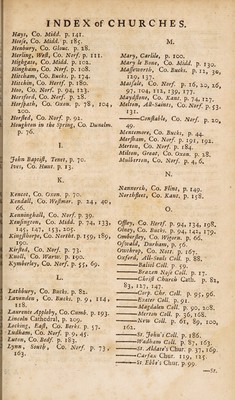 INDEX of CHURCHES.
Hays, Co. Midd. p. 141.
Hese, Co. Midd. p. 185.
Henbury, Co. Glouc. p. 28.
Herling, West, Co. Norf. p. 111.
Highgate, Co. Midd. p. 102.
Hingham, Co. Norf. p. 108.
Hitcham, Co. Bucks. p. 174.
Hitchin, Co. Hertf. p. 180.
Hoe, Co. Norf. p. 94, 123.
Horsford, Co. Norf. p. 28.
Horspath, Co. Oxon. p. 78, 104,
200.
Horsted, Co. Norf. p. 91.
Houghton in the Spring, Co. Dunelm.
p. 76.
I.
John Baptist, Tenet, p. 70.
Ives, Co. Hunt. p. 13.
K.
Kencot, Co. Oxon. p. 70.
Kendall, Co. Westmor. p. 24, 40,
Kenninghall, Co. Norf. p. 39.
Kensington, Co. Midd. p. 74, 133,
145, 147, 153, 205.
Kingsthorpe, Co. Northt. p. 159, 189,
190.
Kirsted, Co. Norf. p. 73.
Knoll, Co. Warw. p. 190.
Kymberley, Co. Norf. p. 55, 69.
L.
Lathbury, Co. Bucks. p. 82.
Lavenden, Co. Bucks. p. 9, 114,
118.
Laurente Appleby, Co. Cumb. p. 193.
Lincoln Cathedral, p. 209.
Locking, East, Co. Berks. p. 57.
Ludham, Co. Norf. p. 9, 45.
Luton, Co. Bedf. p. 183.
Lynn, South, Co. Norf. p. 73,
163.
M.
Mary, Carlisle, p. 100.
Mary le Bone, Co. Midd. p. 130.
Massworth, Co. Bucks. p. 12, 30,
129, 137.
Matsale, Co. Norf. p. 16, 20, 26,
97, 104, 112, 139, 177.
Maydstone, Co. Kant. p. 74, 127.
Melton, All-Saints, Co. Norf. p. 51,
131.
——Constable, Co. Norf. p. 20,
49.
Mentemore, Co. Bucks. p. 44.
Mersham, Co. Norf. p. 191, 192.
Merton, Co. Norf. p. 184.
Milton, Great, Co. Oxon. p. 18.
Mulberton, Co. Norf. p. 4, 6.
N.
Nannerth, Co. Flint, p. 149.
Northfleet, Co. Kant. p. 158.
O.
Offley, Co. Hertf. p. 94, 134, 198.
Olney, Co. Bucks. p. 94, 141, 179.
Ombersley, Co. Wigorn. p. 66.
Oswald, Durham, p. 56.
Outchorp, Co. Nott. p. 167.
Oxford, All-Souls Coll. p. 88.
——Baliol Coll. p. 59.
——Brazen Nose Coll. p. 17.
——Christ Church Cath. p. 81,
83, 127, 147.
——Corp. Chr. Coll. p. 95, 96.
——Exeter Coll. p. 91.
——Magdalen Coll. p. 90, 108.
——Merton Coll. p. 36, 168.
——New Coll. p. 61, 89, 100,
162.
——St. John's Coll. p. 186.
——Wadham Coll. p. 87, 163.
——St. Aldate's Chur. p. 37, 169.
——Carfax Chur. 119, 125
——St Ebbe's Chur. p. 99.
—St.